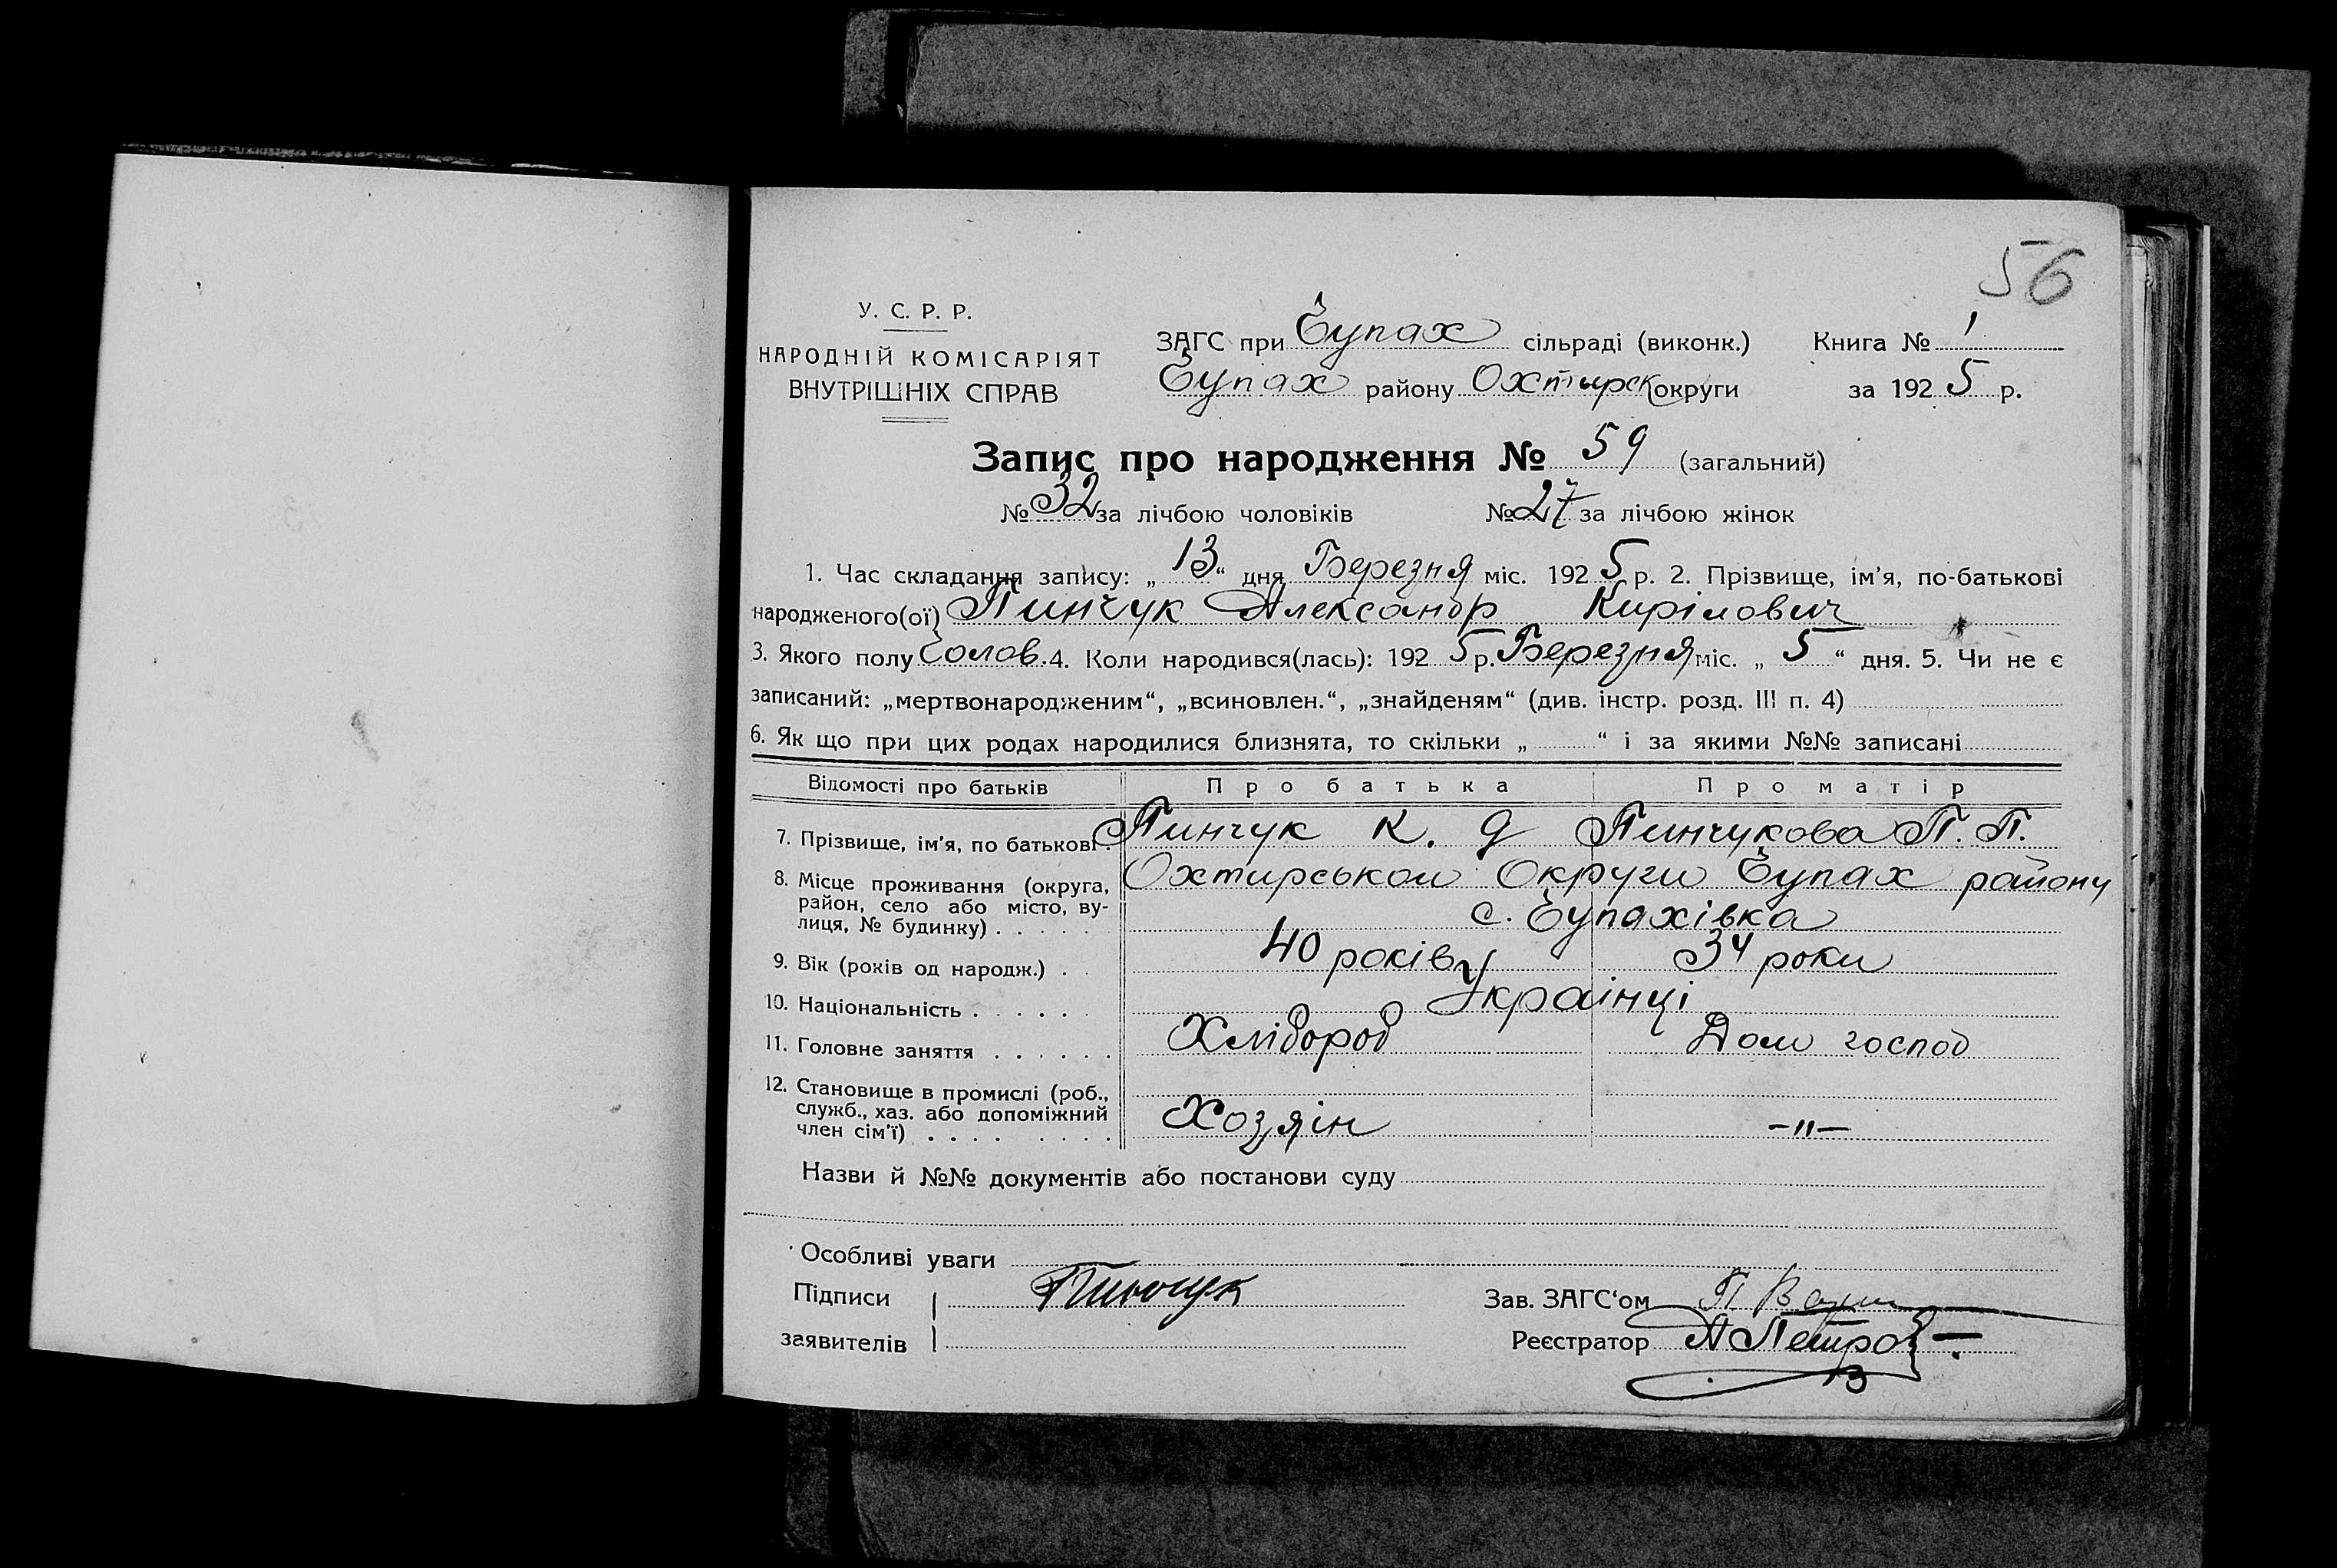 56
У. С. Р. Р.
НАРОДНІЙ КОМІСАРІЯТ
ВНУТРІШНІХ СПРАВ
ЗАГС при Чупах сільраді (виконк.) Книга № 1
Чупах району Охтирск округи за 1925 р.
Запис про народження № 59 (загальний)
№ 32 за лічбою чоловіків № 27 за лічбою жінок
1. Час складання запису: „13“ дня Березня міс. 1925 р. 2. Прізвище, ім’я, по-батькові
народженого(ої) Пинчук Александр Кирілович
3. Якого полу Чолов. 4. Коли народився(лась): 1925 р. Березня міс. „5“ дня. 5. Чи не є
записаний: „мертвонародженим“, „всиновлен.“, „знайденям“ (див. інстр. розд. III п. 4)
6. Як що при цих родах народилися близнята, то скільки „ “ і за якими №№ записані
Відомості про батьків Про батька Про матір
7. Прізвище, ім’я, по батькові. Пинчук К. Д Пинчукова П. П.
8. Місце проживання (округа, Охтирськои Округи Чупах району
район, село або місто, ву-
лиця, № будинку) . . . . . с. Чупахівка
9. Вік (років од народж.) . . 40 років 34 роки
10. Національність . . . . . . Украінці
11. Головне заняття . . . . . . Хлібороб Дом господ
12. Становище в промислі (роб.,
служб., хаз. або допоміжний
член сім’ї) . . . . . . . . Хозяін –"–
Назви й №№ документів або постанови суду
Особливі уваги
Підписи Пинчук Зав. ЗАГС‘ом П
заявителів Реєстратор А Петров